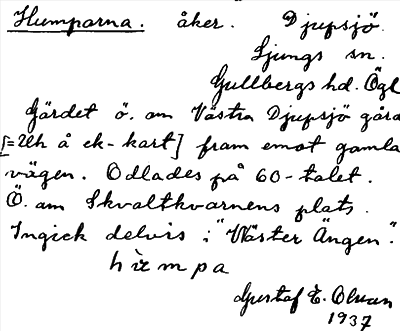 Humparna. åker. Djupsjö.
Ljungs sn.
Gullbergs hd. Ögl
Gärdet ö. om Västra Djupsjö gård
å ek-kart] fram emot gamla
vägen. Odlades på 60-talet.
Ö. om Skvaltkvarnens plats.
Ingick delvis i "Väster Ängen".
Gustaf E. Olsson
1937